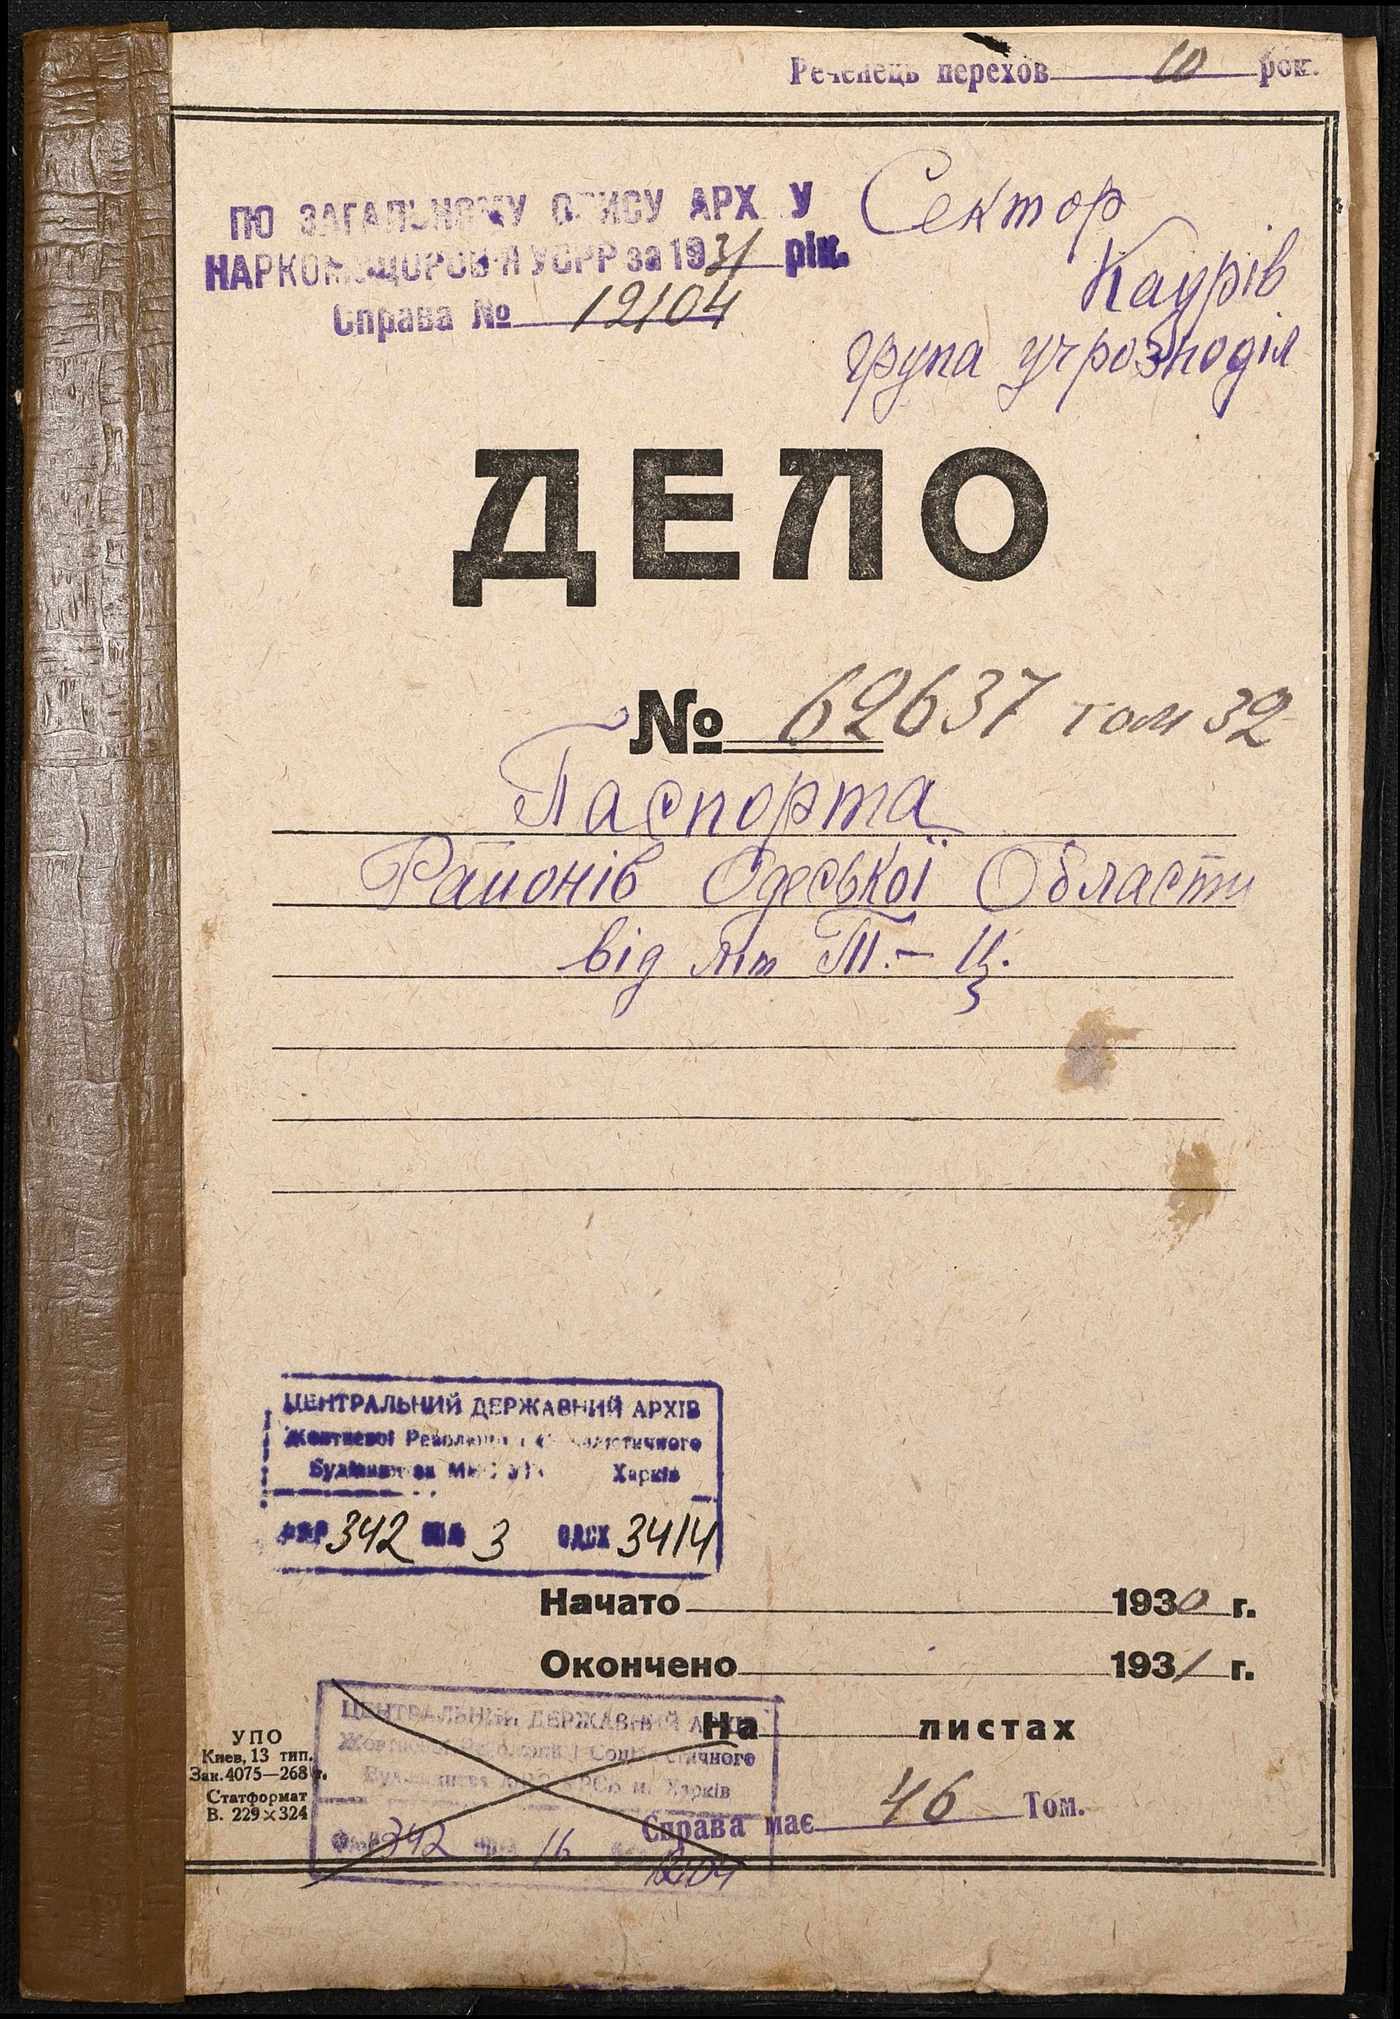 Реченець перехов 10 рок.
ПО ЗАГАЛЬНОМУ ОПИСУ АРХ У
НАРКОМ УСРР за 1931 рік.
Справа № 12104
Сектор
Кадрів
група учрозподіл
ДЕЛО
№ 62637 том 32
Паспорта
Районів Одеської Области
від літ П.- Ц.
ЦЕНТРАЛЬНИЙ ДЕРЖАВНИЙ АРХІВ
Жовтневої Революції і Соціалістичного
Будівництва Харків
342 3 3414
Начато 1930 г.
Окончено 1931 г.
ЦЕНТРАЛЬНИЙ ДЕРЖАВНИЙ АРХІВ
Жовтневої Революції і Соціалістичного
Будівництва УРСР м. Харків
Фонд 342 16 12104
На листах
Справа має 46 Том.
УПО
Киев, 13 тип.
Зак. 4075—268 г.
Статформат
В. 229×324